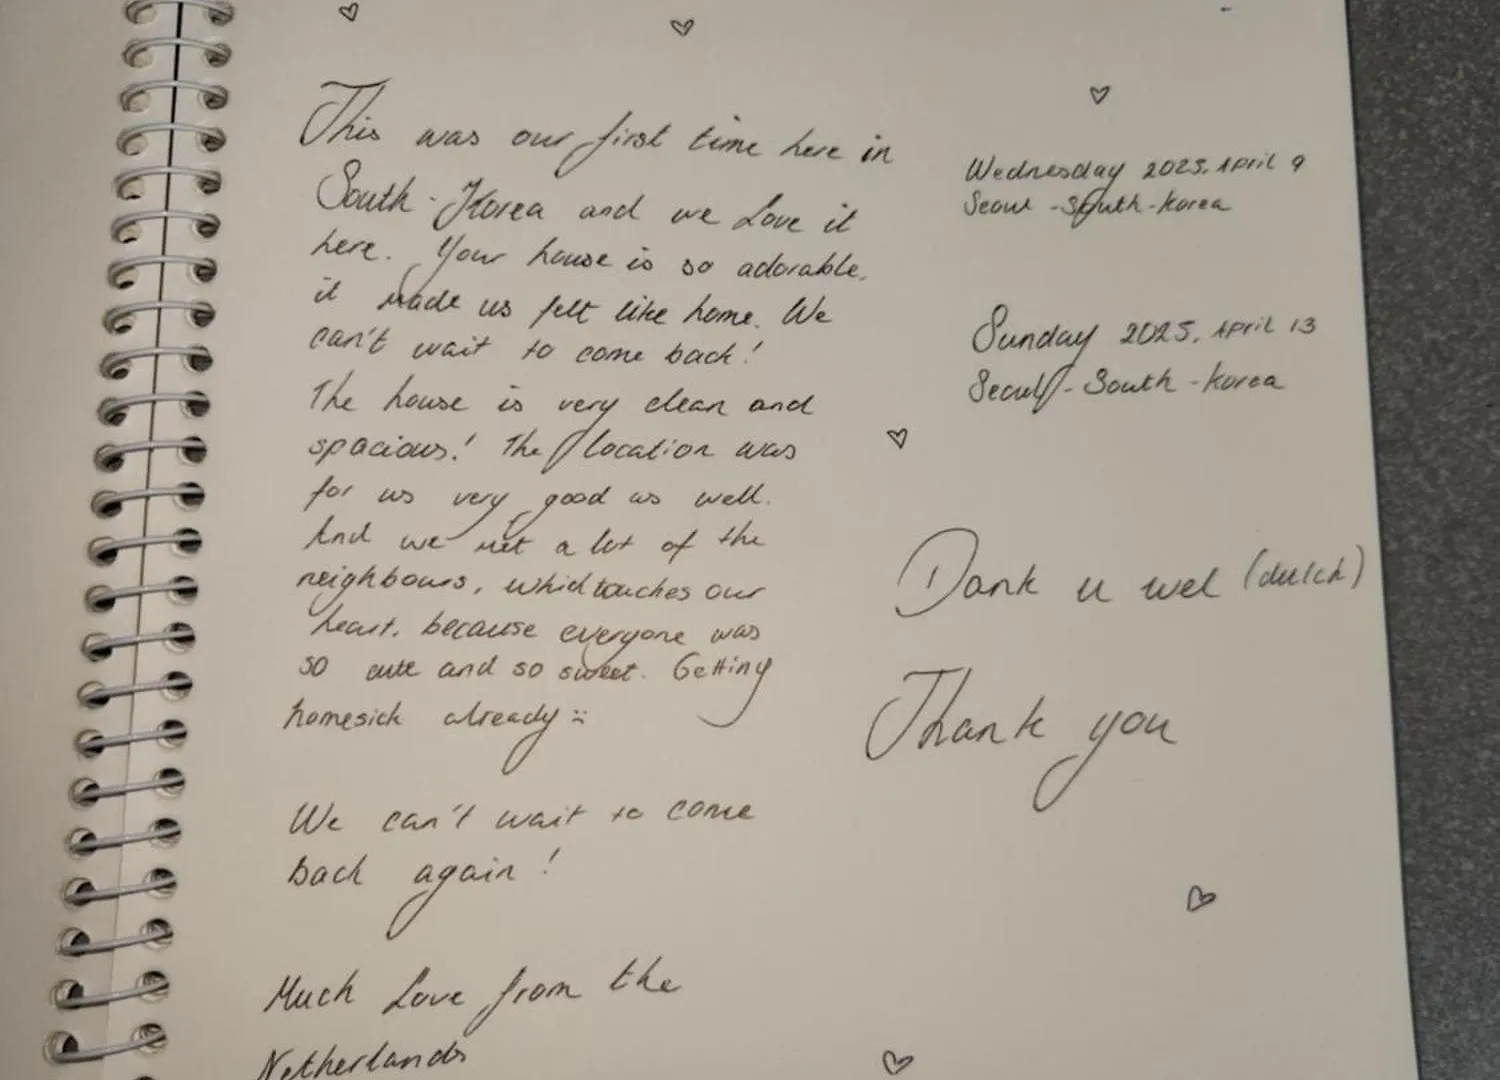 This was our first time here in
South-Korea and we love it
here. Your house is so adorable.
it made us felt like home. We
can't wait to come back!
The house is very clean and
spacious! The location was
for us very good as well.
And we met a lot of the
neighbours, which touches our
heart. because everyone was
so cute and so sweet. Getting
homesick already :(
We can't wait to come
back again!
Much Love from the
Netherlands
Wednesday 2025. April 9
Seoul - South-Korea
Sunday 2025. April 13
Seoul - South - Korea
Dank u wel (dutch)
Thank you